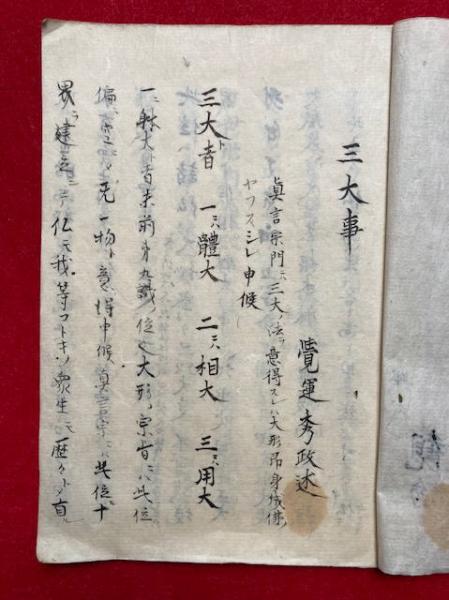 三大事
覺運秀政述
眞言宗門ニ三大ノ法ヲ意得スレハ大形即身成佛
ヤスヘシレ申候
三大者ト 一ニハ體大 二ニハ相大 三ニハ用大
一ニ躰大ト者未前ノ第九識ノ位也大形ノ宗旨ニハ此位
偏ニ空ニシテ无一物ト意得申候眞言宗ニハ此位ニ十
界ヲ建立シテ仏モ我等コトキノ衆生モ歴々ト直